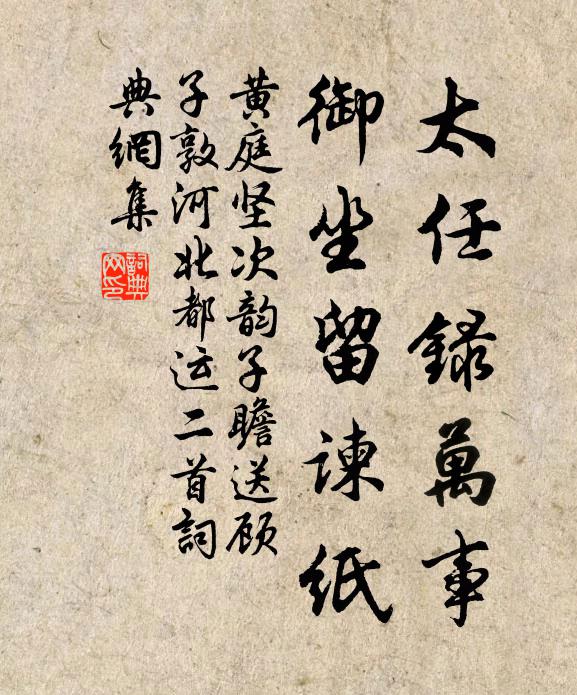 太任錄萬事
御坐留諫紙
黄庭坚次韵子瞻送顾
子敦河北都运二首詞
典網集
詞典網印